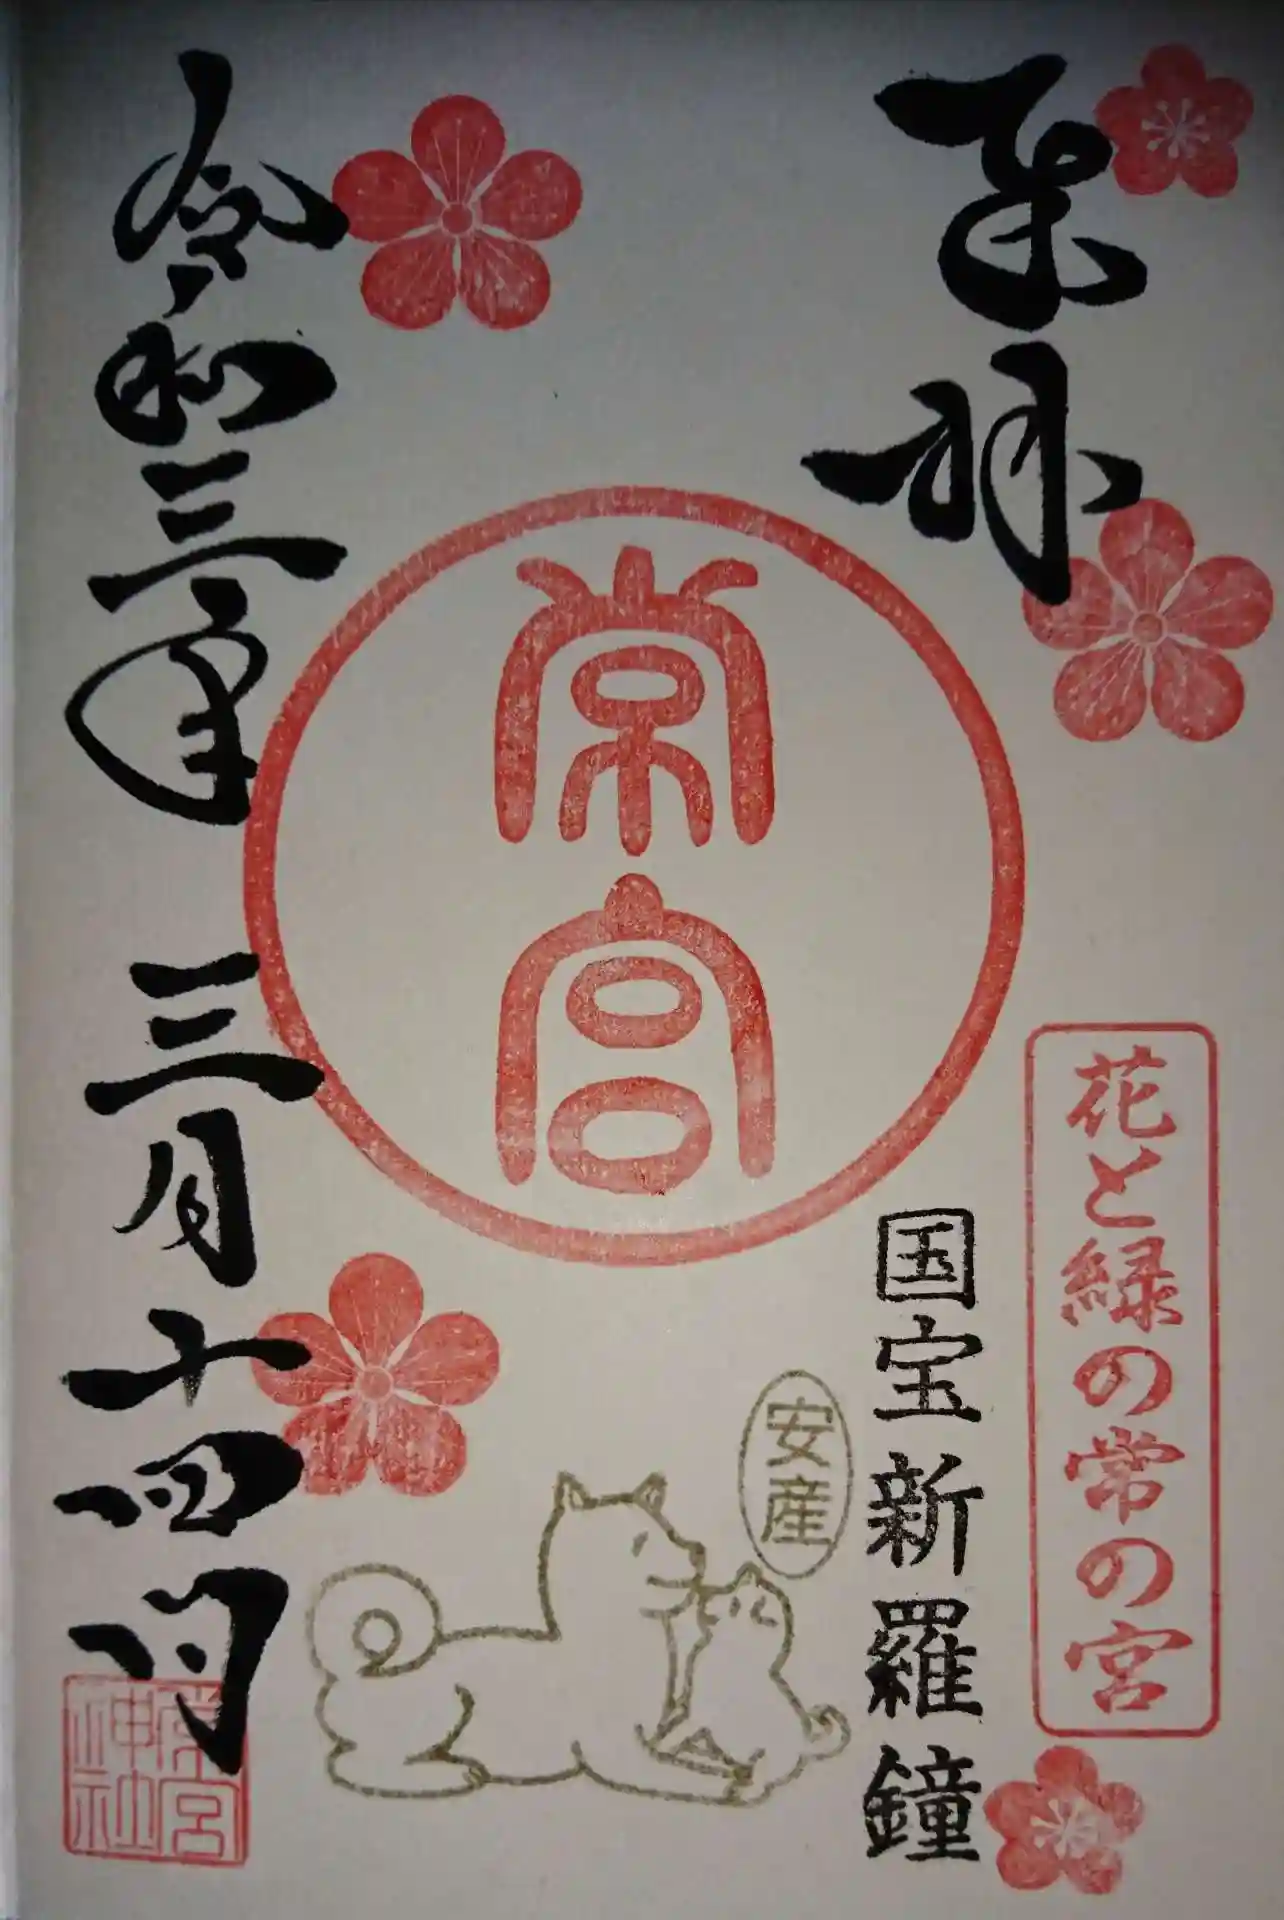 奉拝
花と緑の常の宮
国宝新羅鐘
安産
常宮
令和三年 三月十四日
常宮
神社